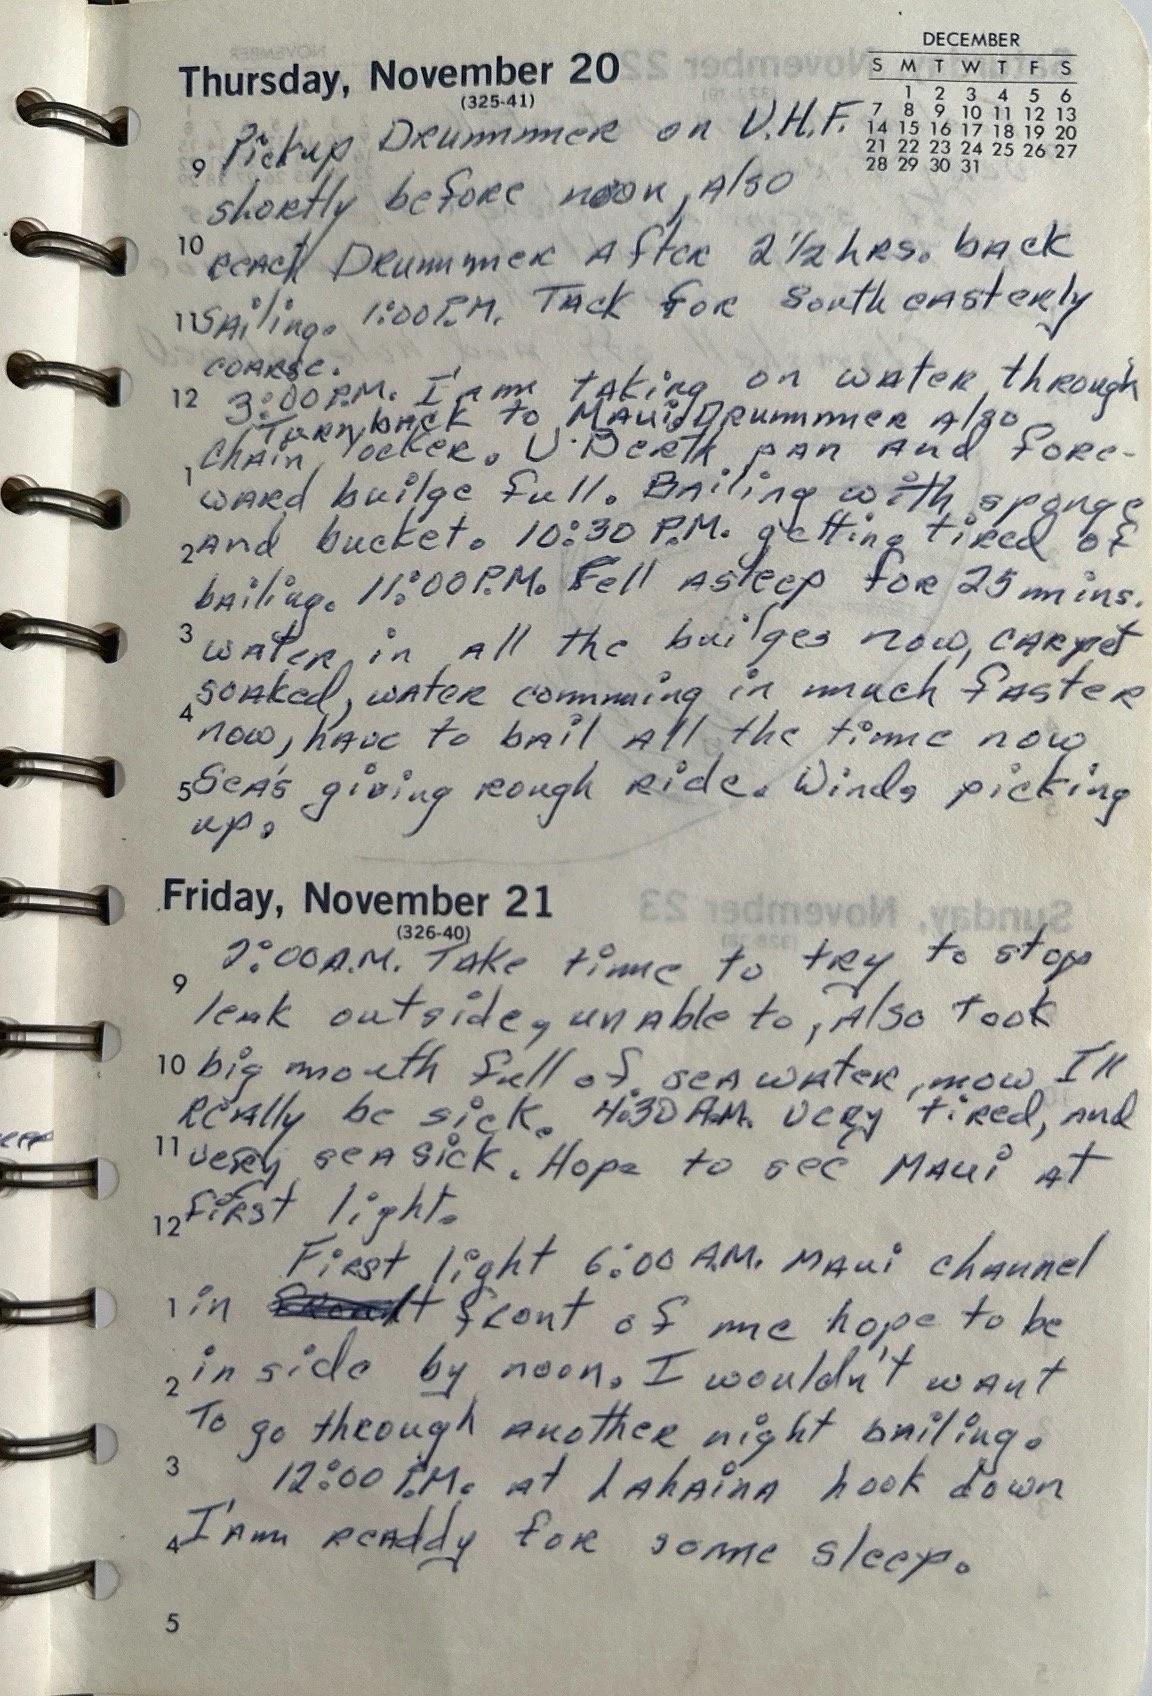 DECEMBER
S M T W T F S
1 2 3 4 5 6
7 8 9 10 11 12 13
14 15 16 17 18 19 20
21 22 23 24 25 26 27
28 29 30 31
Thursday, November 20
(325-41)
Pickup Drummmer on V.H.F.
9 shortly before noon, Also
10 reach Drummmer After 2 1/2 hrs. back
11 SAiling. 1:00 P.M. TAck for South eAsterly
coarse.
12 3:00 P.M. I'am taking on water through
Turn back to Maui, Drummmer Also
chain locker. V. Berth pan and fore-
1 ward builge full. Bailing with sponge
2 and bucket. 10:30 P.M. getting tired of
bailing. 11:00 P.M. Fell asleep for 25 mins.
3 water in all the builges now, carpet
soaked, water comming in much faster
4 now, have to bail all the time now
5 Sea's giving rough ride. Winds picking
up.
Friday, November 21
(326-40)
2:00 A.M. Take time to try to stop
9 leak outside, unable to, Also Took
10 big mouth full of sea water, mow I'll
really be sick. 4:30 A.M. very tired, and
11 very sea sick. Hope to see Maui at
12 first light.
First light 6:00 A.M. Maui channel
1 in front of me hope to be
2 in side by noon. I wouldn't want
To go through another night bailing.
3 12:00 P.M. at Lahaina hook down
4 I'am readdy for some sleep.
5